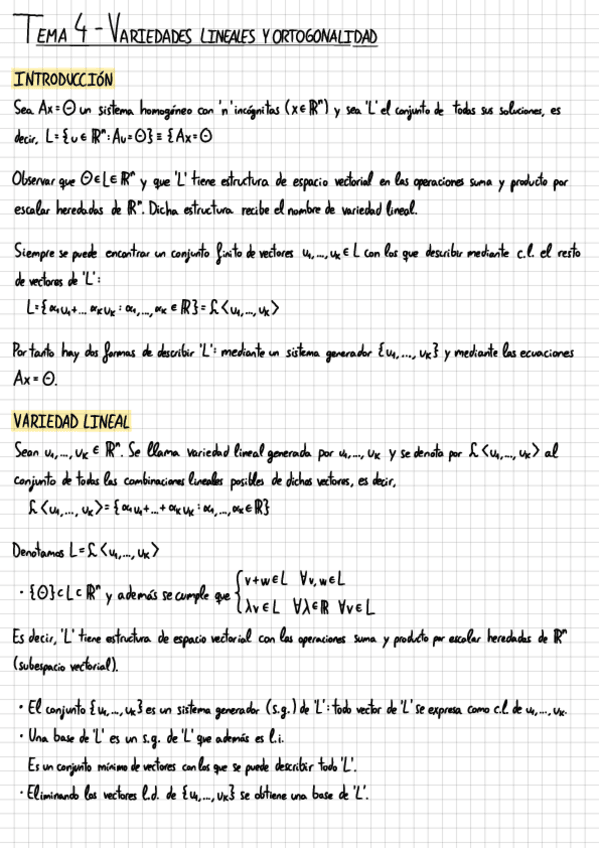 TEMA 4 - VARIEDADES LINEALES Y ORTOGONALIDAD
INTRODUCCIÓN
Sea Ax=Θ un sistema homogéneo con 'n' incógnitas (x∈ℝⁿ) y sea 'L' el conjunto de todas sus soluciones, es
decir, L={u∈ℝⁿ:Au=Θ}≡{Ax=Θ
Observar que Θ∈L∈ℝⁿ y que 'L' tiene estructura de espacio vectorial en las operaciones suma y producto por
escalar heredadas de ℝⁿ. Dicha estructura recibe el nombre de variedad lineal.
Siempre se puede encontrar un conjunto finito de vectores u₁,...,uₖ∈L con los que describir mediante c.l. el resto
de vectores de 'L':
L={α₁u₁+... αₖuₖ : α₁,...,αₖ∈ℝ}=ℒ<u₁,...,uₖ>
Por tanto hay dos formas de describir 'L': mediante un sistema generador {u₁,...,uₖ} y mediante las ecuaciones
Ax=Θ.
VARIEDAD LINEAL
Sean u₁,...,uₖ∈ℝⁿ. Se llama variedad lineal generada por u₁,...,uₖ y se denota por ℒ<u₁,...,uₖ> al
conjunto de todas las combinaciones lineales posibles de dichos vectores, es decir,
ℒ<u₁,...,uₖ>={α₁u₁+...+αₖuₖ : α₁,...,αₖ∈ℝ}
Denotamos L=ℒ<u₁,...,uₖ>
· {Θ}⊂L⊂ℝⁿ y además se cumple que { v+w∈L ∀v,w∈L
λv∈L ∀λ∈ℝ ∀v∈L
Es decir, 'L' tiene estructura de espacio vectorial con las operaciones suma y producto por escalar heredadas de ℝⁿ
(subespacio vectorial).
· El conjunto {u₁,...,uₖ} es un sistema generador (s.g.) de 'L': todo vector de 'L' se expresa como c.l. de u₁,...,uₖ.
· Una base de 'L' es un s.g. de 'L' que además es l.i.
Es un conjunto mínimo de vectores con los que se puede describir todo 'L'.
· Eliminando los vectores l.d. de {u₁,...,uₖ} se obtiene una base de 'L'.